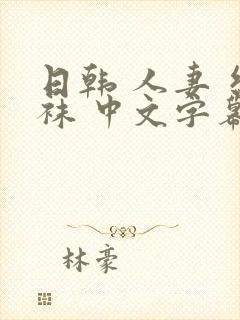 日韩 人妻
袜 中文字
林豪